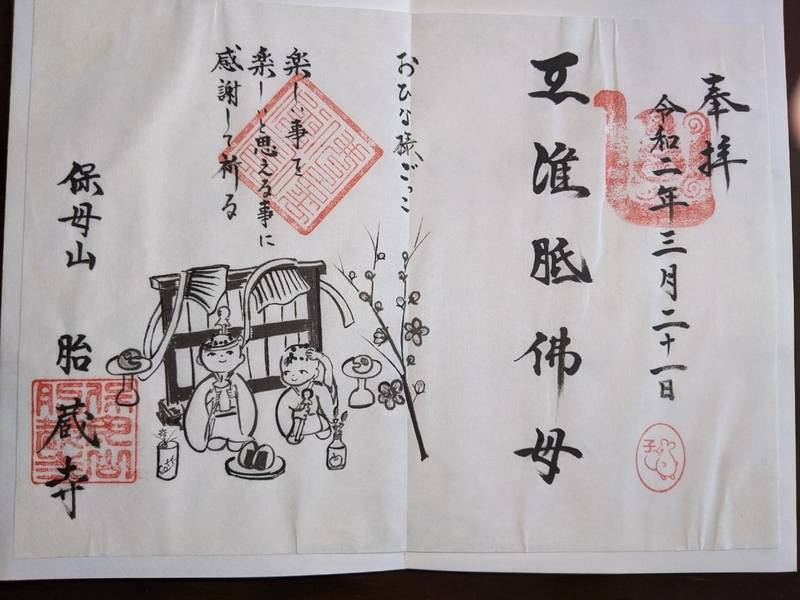 奉拝
令和二年三月二十一日
子
准胝佛母
おひな様ごっこ
楽しい事を
楽しいと思える事に
感謝して祈る
保母山 胎蔵寺